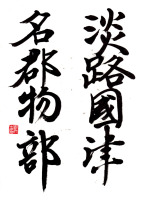 淡路國津
名郡物部